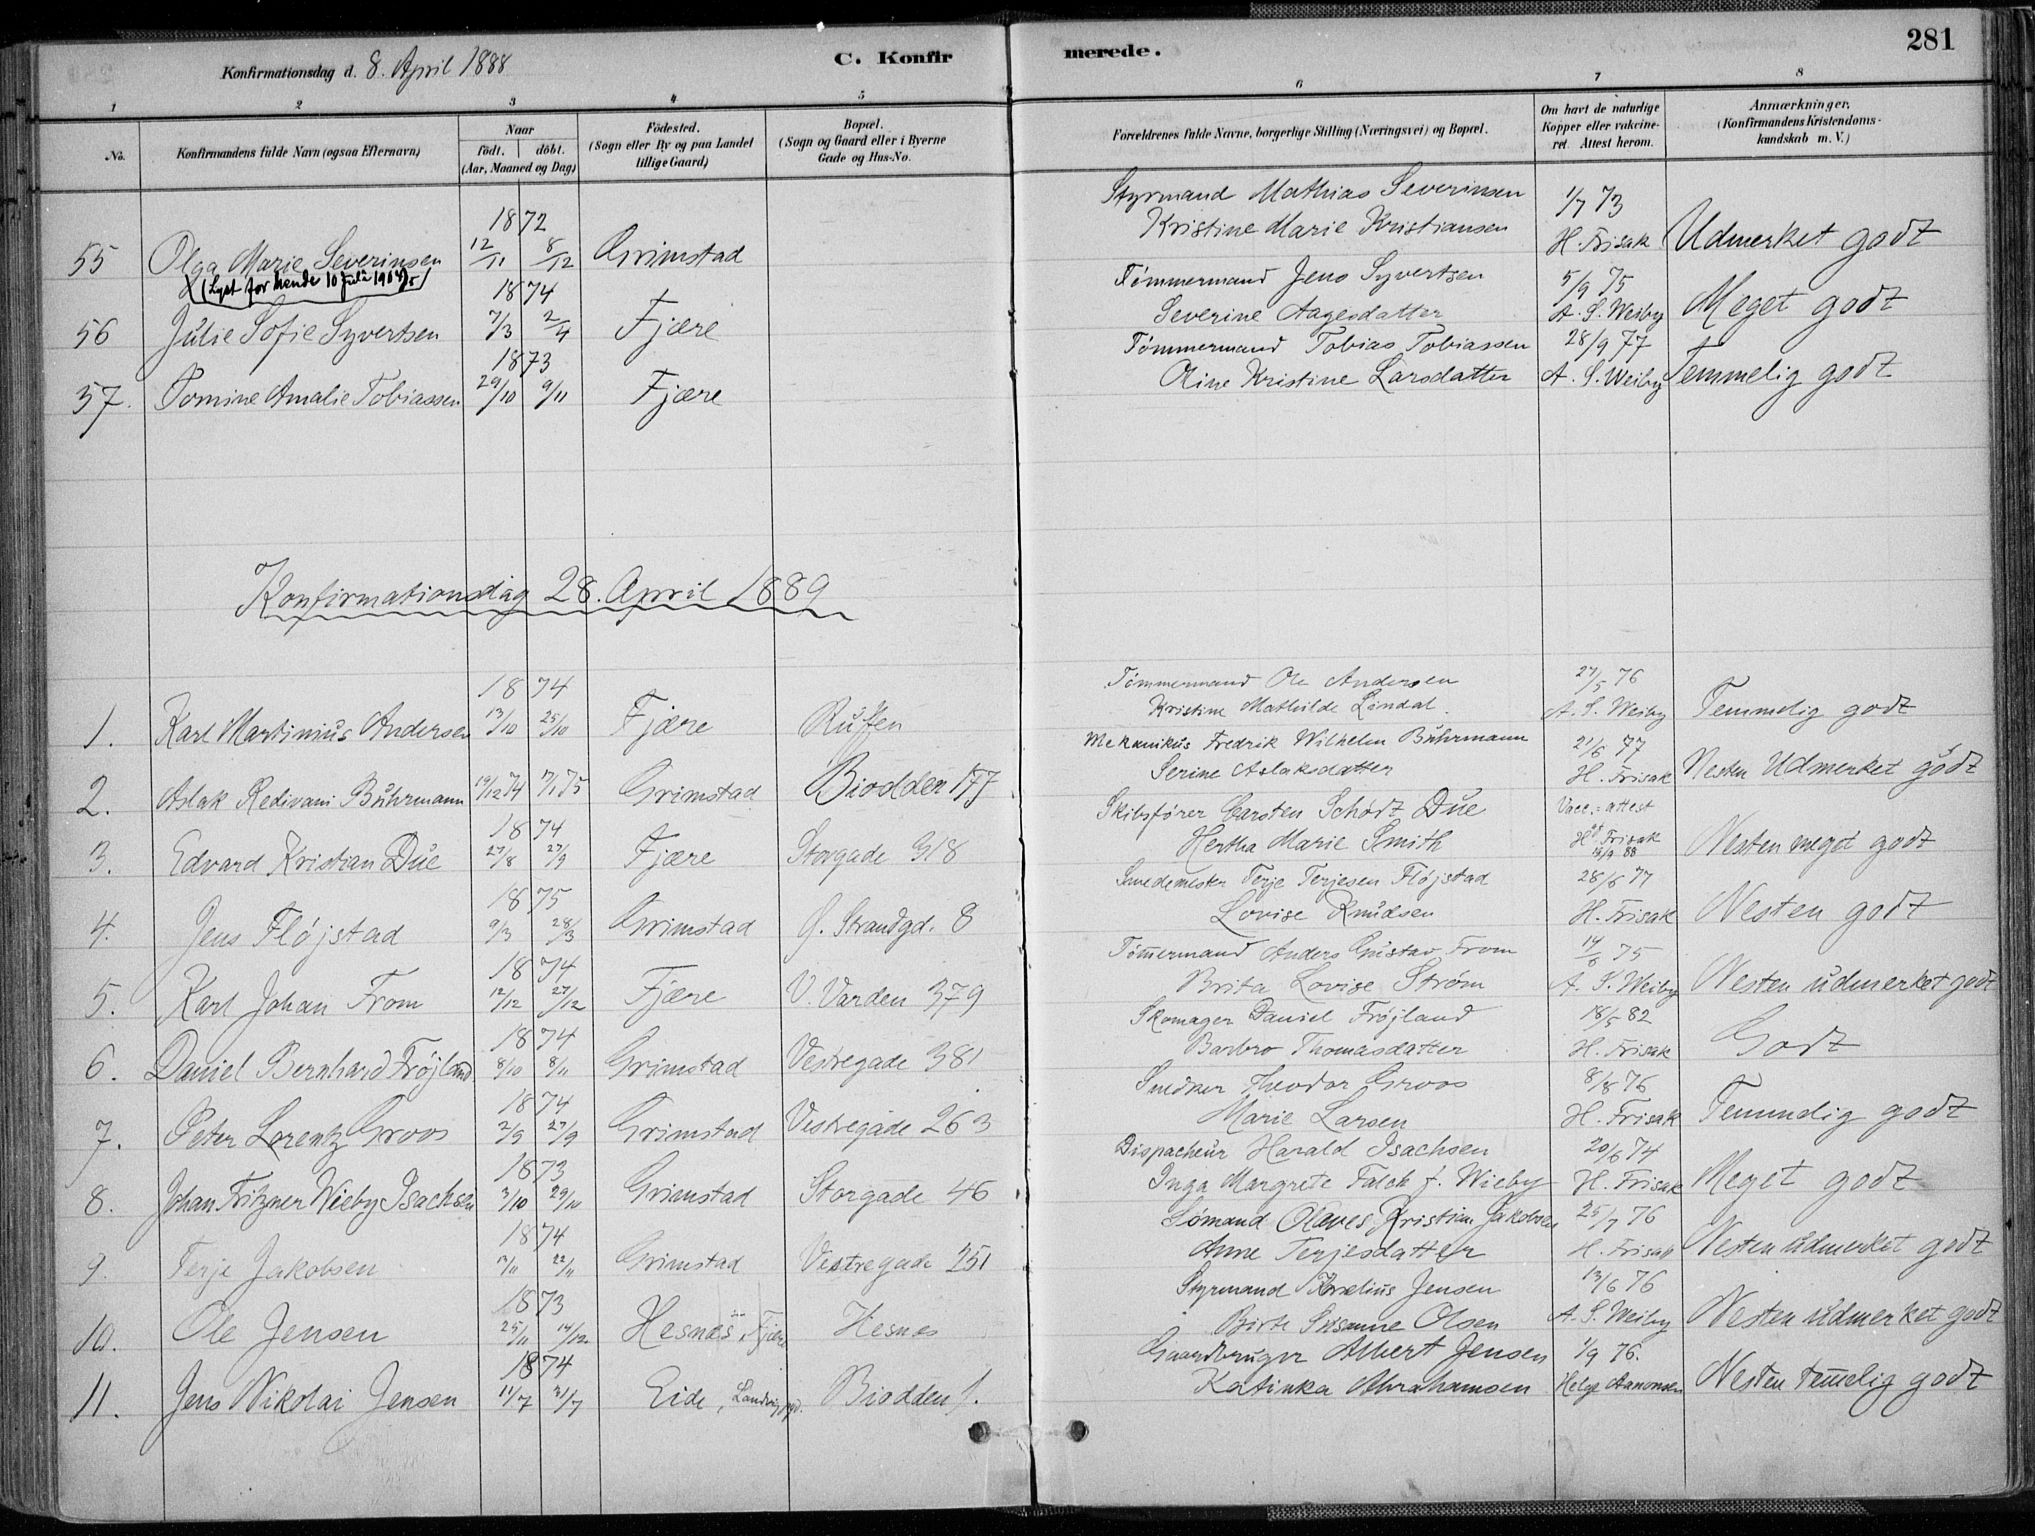 281
Konfirmationsdag d. 8. April 1888
C. Konfirmerede.
1 2 3 4 5 6 7 8
No.
Konfirmandens fulde Navn (ogsaa Efternavn)
Naar
födt. döbt.
(Aar, Maaned og Dag)
Födested.
(Sogn eller By og paa Landet
tillige Gaard)
Bopæl.
(Sogn og Gaard eller i Byerne
Gade og Hus-No.
Forældrenes fulde Navne, borgerlige Stilling (Næringsvei) og Bopæl.
Om havt de naturlige
Kopper eller vakcine-
ret. Attest herom.
Anmærkninger.
(Konfirmandens Kristendoms-
kundskab m. V.)
1872
55 Olga Marie Severinsen 12/11 8/12 Grimstad
Styrmand Mathias Severinsen 1/7 73
Kristine Marie Kristiansen H. Frisak Udmerket godt
(Lyst for hende 10 Juli 1904)
1874
56 Julie Sofie Syvertsen 7/3 2/4 Fjære
Tømmermand Jens Syvertsen 5/9 75
Severine Aagesdatter A. S. Weiby Meget godt
1873
57. Tomine Amalie Tobiassen 29/10 9/11 Fjære
Tømmermand Tobias Tobiassen 28/9 77
Oline Kristine Larsdatter A. S. Weiby Temmelig godt
Konfirmationsdag 28. April 1889
1874
1. Karl Martinius Andersen 13/10 25/10 Fjære
Tømmermand Ole Andersen 27/5 76
Kristine Mathilde Lindal. A. S. Weiby Temmelig godt
2. Aslak Redivani Bührmann 19/12 74 17/1 75 Grimstad Biodden 177
Mekanikus Fredrik Wilhelm Bührmann 21/6 77
Serine Aslaksdatter H. Frisak Nesten Udmerket godt
1874
3. Edvard Kristian Due 27/8 27/9 Fjære Storgade 318
Skibsfører Carsten Schødt Due Vacc.=attest
Hertha Marie Smith H. Frisak 88 Nesten meget godt
1875
4. Jens Fløjstad 9/3 28/3 Grimstad Strandgd. 8
Smedemester Terje Terjesen Fløjstad 28/6 77
Lovise Knudsen H. Frisak Nesten godt
1874
5. Karl Johan From 12/12 27/12 Fjære V. Varden 379
Tømmermand Anders Gustav From 14/6 75
Brita Lovise Strøm A. S. Weiby Nesten udmerket godt
1874
6. Daniel Bernhard Frøjland 8/10 8/11 Grimstad Vestregade 381
Skomager Daniel Frøjland 18/5 82
Barbro Thomasdatter H. Frisak Godt
1874
7. Peter Lorentz Groos 2/9 27/9 Grimstad Vestregade 263
Snedker Theodor Groos 8/8 76
Marie Larsen H. Frisak Temmelig godt
1873
8. Johan Fritzner Wieby Isachsen 3/10 29/11 Grimstad Storgade 46
Dispacheur Harald Isachsen 20/6 74
Inga Margrete Falck f. Wieby H. Frisak Meget godt
1874
9. Terje Jakobsen 22/11 Grimstad Vestregade 251
Sømand Olaves Kristian Jakobsen 25/7 76
Anne Terjesdatter H. Frisak Nesten udmerket godt
1873
10. Ole Jensen 25/11 14/12 Hesnes, Fjære Hesnes
Styrmand Jensen 13/6 76
Birte Susanne Olsen A. S. Weiby Nesten udmerket godt
1874
11. Jens Nikolai Jensen 11/7 31/7 Eide, Biodden
Gaardbruger Albert Jensen 1/9 76.
Katinka Abrahamsen Helge Aanonsen Nesten temelig godt